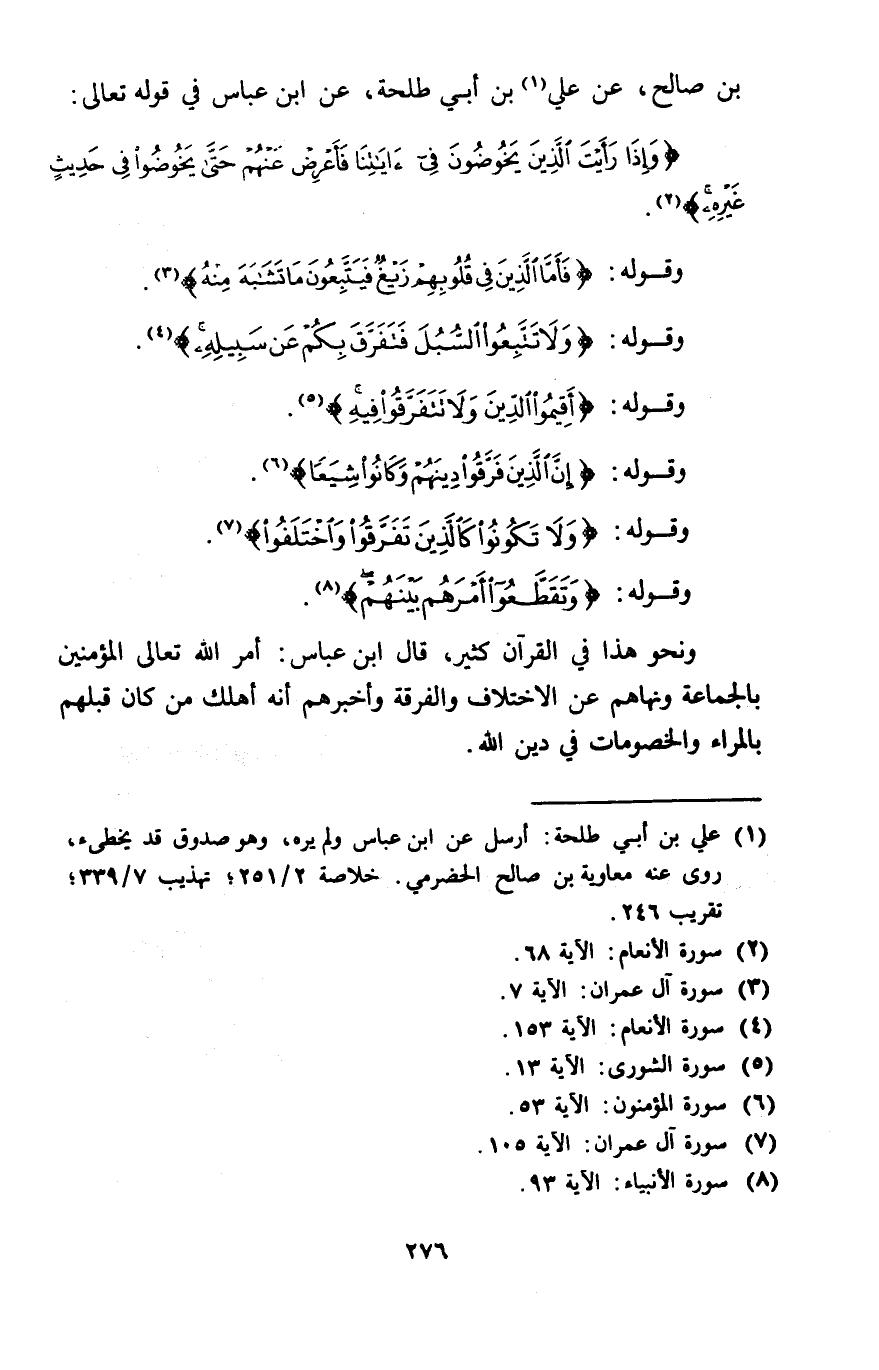 بن صالح، عن علي(١) بن أبـي طلحة، عن ابن عباس في قوله تعالى:
﴿وَإِذَا رَأَيْتَ ٱلَّذِينَ يَخُوضُونَ فِىٓ ءَايَٰتِنَا فَأَعْرِضْ عَنْهُمْ حَتَّىٰ يَخُوضُوا۟ فِى حَدِيثٍ
غَيْرِهِۦ ۚ﴾(٢).
وقـوله: ﴿فَأَمَّا ٱلَّذِينَ فِى قُلُوبِهِمْ زَيْغٌ فَيَتَّبِعُونَ مَا تَشَٰبَهَ مِنْهُ﴾(٣).
وقـوله: ﴿وَلَا تَتَّبِعُوا۟ ٱلسُّبُلَ فَتَفَرَّقَ بِكُمْ عَن سَبِيلِهِۦ ۚ﴾(٤).
وقـوله: ﴿أَقِيمُوا۟ ٱلدِّينَ وَلَا تَتَفَرَّقُوا۟ فِيهِ ۚ﴾(٥).
وقـوله: ﴿إِنَّ ٱلَّذِينَ فَرَّقُوا۟ دِينَهُمْ وَكَانُوا۟ شِيَعًا﴾(٦).
وقـوله: ﴿وَلَا تَكُونُوا۟ كَٱلَّذِينَ تَفَرَّقُوا۟ وَٱخْتَلَفُوا۟﴾(٧).
وقـوله: ﴿وَتَقَطَّعُوٓا۟ أَمْرَهُم بَيْنَهُمْ ۖ﴾(٨).
ونحو هذا في القرآن كثير، قال ابن عباس: أمر الله تعالى المؤمنين
بالجماعة ونهاهم عن الاختلاف والفرقة وأخبرهم أنه أهلك من كان قبلهم
بالمراء والخصومات في دين الله.
(١) علي بن أبـي طلحة: أرسل عن ابن عباس ولم يره، وهو صدوق قد يخطىء،
روى عنه معاوية بن صالح الحضرمي. خلاصة ٢٥١/٢؛ تهذيب ٣٣٩/٧؛
تقريب ٢٤٦.
(٢) سورة الأنعام: الآية ٦٨.
(٣) سورة آل عمران: الآية ٧.
(٤) سورة الأنعام: الآية ١٥٣.
(٥) سورة الشورى: الآية ١٣.
(٦) سورة المؤمنون: الآية ٥٣.
(٧) سورة آل عمران: الآية ١٠٥.
(٨) سورة الأنبياء: الآية ٩٣.
٢٧٦